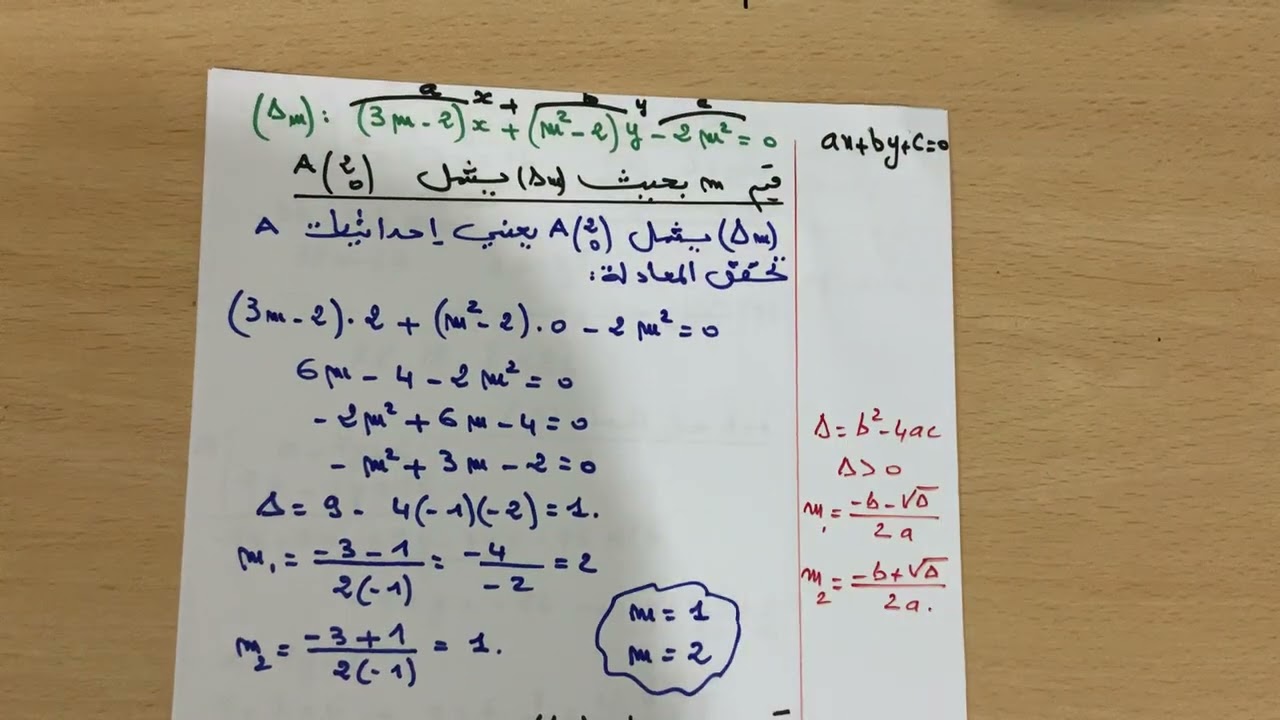 a x + b y c
(Δm): (3m-2)x + (m²-2)y - 2m² = 0
قيم m بحيث (Δm) يشمل A(2 0)
(Δm) يشمل A(2 0) يعني إحداثيات A
تحقق المعادلة:
(3m-2)·2 + (m²-2)·0 - 2m² = 0
6m - 4 - 2m² = 0
-2m² + 6m - 4 = 0
-m² + 3m - 2 = 0
Δ = 9 - 4(-1)(-2) = 1.
m₁ = (-3-1)/(2(-1)) = (-4)/(-2) = 2
m₂ = (-3+1)/(2(-1)) = 1.
m = 1
m = 2
ax+by+c=0
Δ = b²-4ac
Δ > 0
m₁ = (-b-√Δ)/(2a)
m₂ = (-b+√Δ)/(2a).